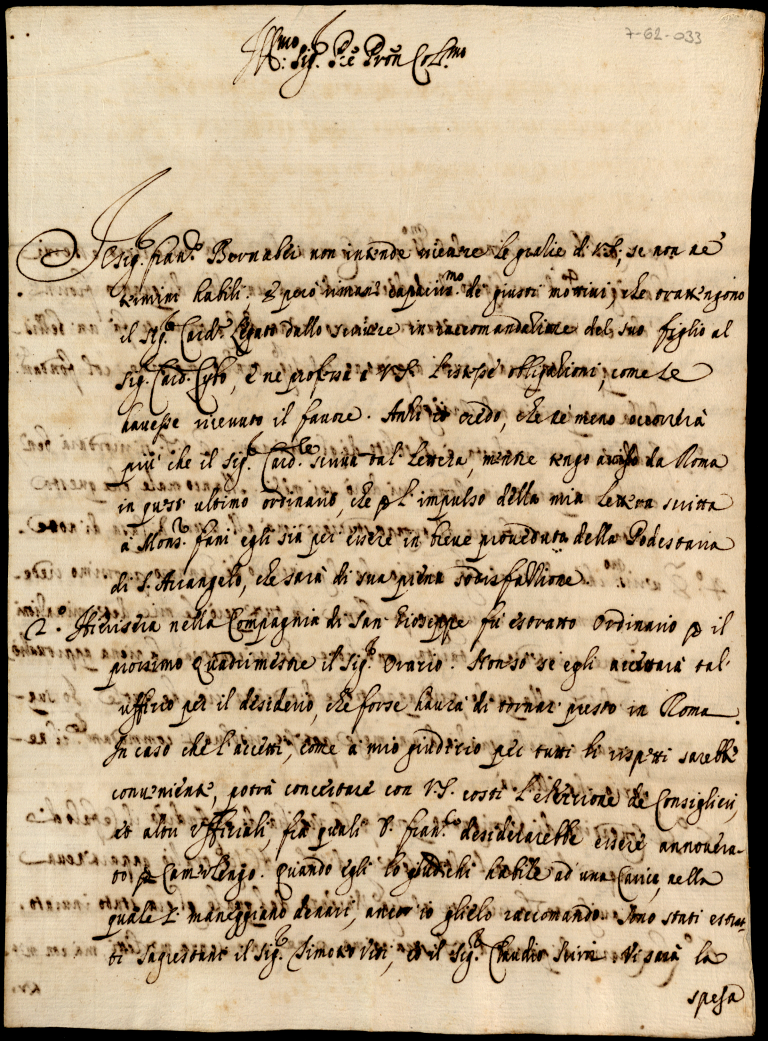 7-62-033
Ill.mo Sig.r P.re Pron Col.mo
Il Sig.r Fran.co Bernabei non intende ricevere le grazie di V.S., se non ne'
termini habili. E però rimane capacis.mo de giusti mottivi, che trattengono
il Sig.r Card.l Legato dallo scrivere in raccomandatione del suo figlio al
Sig. Card. Cybo, e ne professa a V.S. l'istesse obligationi, come se
havesse ricevuto il favore. Anzi io credo, che ne meno occorrerà
più che il Sig.r Card.le scriva tal lettera, mentre tengo aviso da Roma
in quest' ultimo ordinario, che p l'impulso della mia lettera scritta
à Mons.r Fani egli sia per essere in breve proveduto della Podestaria
di S. Arcangelo, che sarà di sua piena sodisfattione.
2.o Hierisera nella Compagnia di San Gioseppe fù estratto Ordinario p il
prossimo quadrimestre il Sig.r Orazio. Non sò se egli accettarà tal'
uffizio per il desiderio, che forse haurà di tornar presto in Roma.
In caso che l'accetti, come à mio giudicio per tutti li rispetti sarebbe
conveniente, potrà concertare con V.S. costì l'elettione de Consiglieri,
et altri ufficiali, frà quali S. Fran.co desiderarebbe essere annovera-
to p Camerlengo. Quando egli lo giudichi habile ad una Carica, nella
quale si maneggiano denari, ancor io glielo raccomando. Sono stati estrat-
ti Sagrestani il Sig.r Simon et il Sig.r Claudio Vi sarà la
spesa